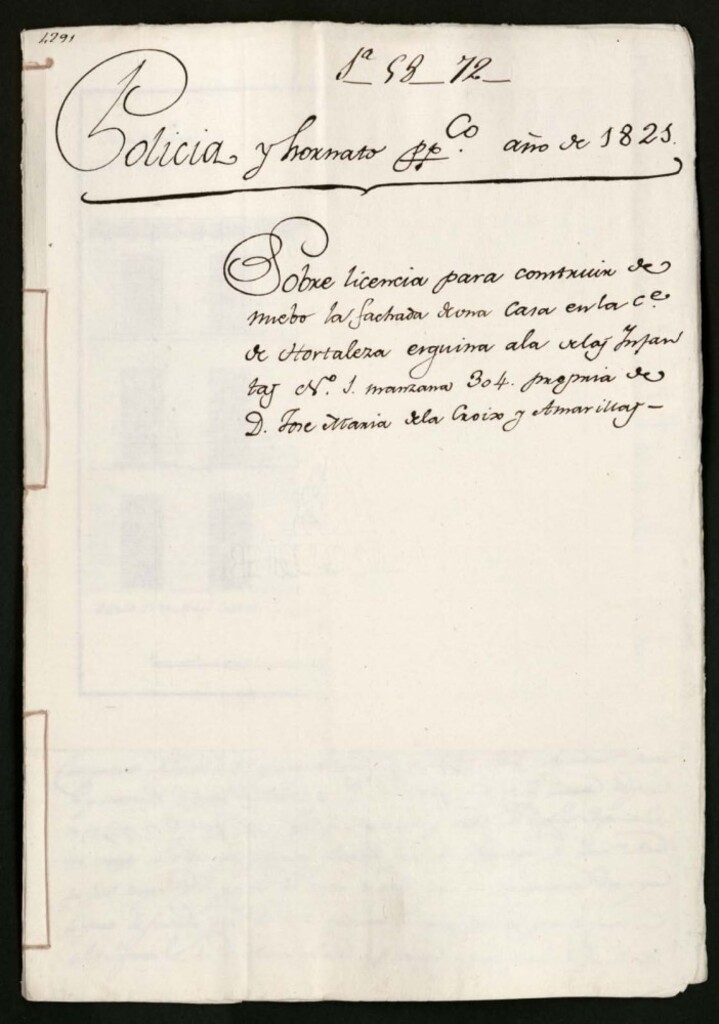 1291
1ª 58 72
Policia y hornato ppCo. año de 1821.
Sobre licencia para construir de
nuebo la fachada de una Casa en la ce.
de Hortaleza esquina ala delas Infan
tas No. 1. manzana 304. propia de
D. Jose Maria dela Croix y Amarillas